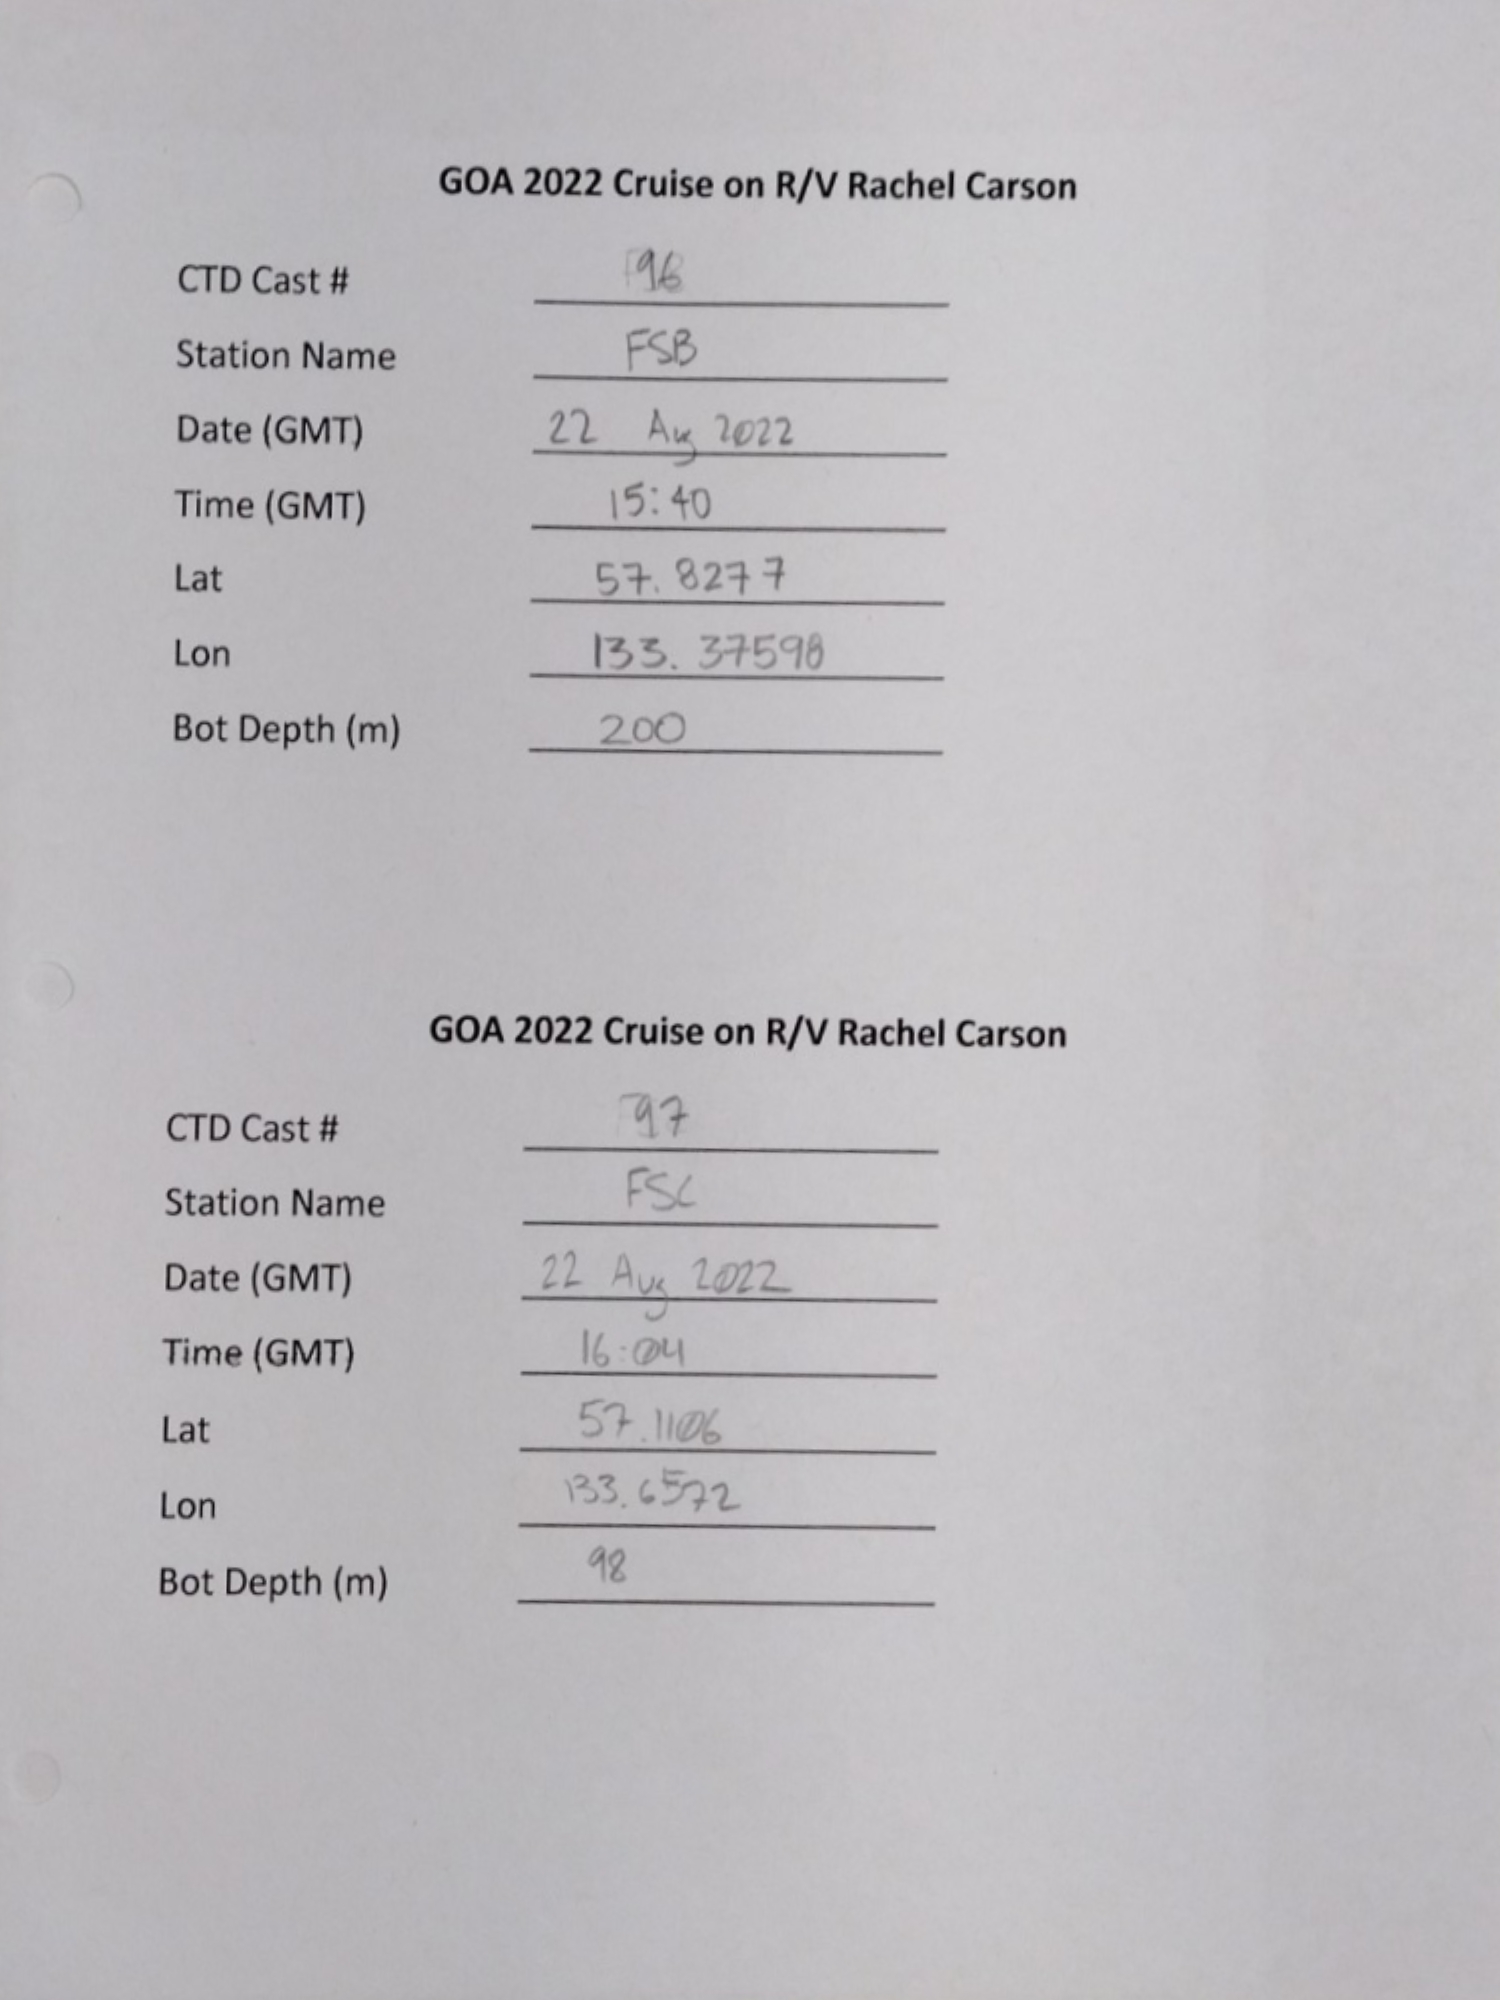 GOA 2022 Cruise on R/V Rachel Carson
CTD Cast # 96
Station Name FSB
Date (GMT) 22 Aug 2022
Time (GMT) 15:40
Lat 57.8277
Lon 133.37598
Bot Depth (m) 200
GOA 2022 Cruise on R/V Rachel Carson
CTD Cast # 97
Station Name FSC
Date (GMT) 22 Aug 2022
Time (GMT) 16:04
Lat 57.1106
Lon 133.6572
Bot Depth (m) 98